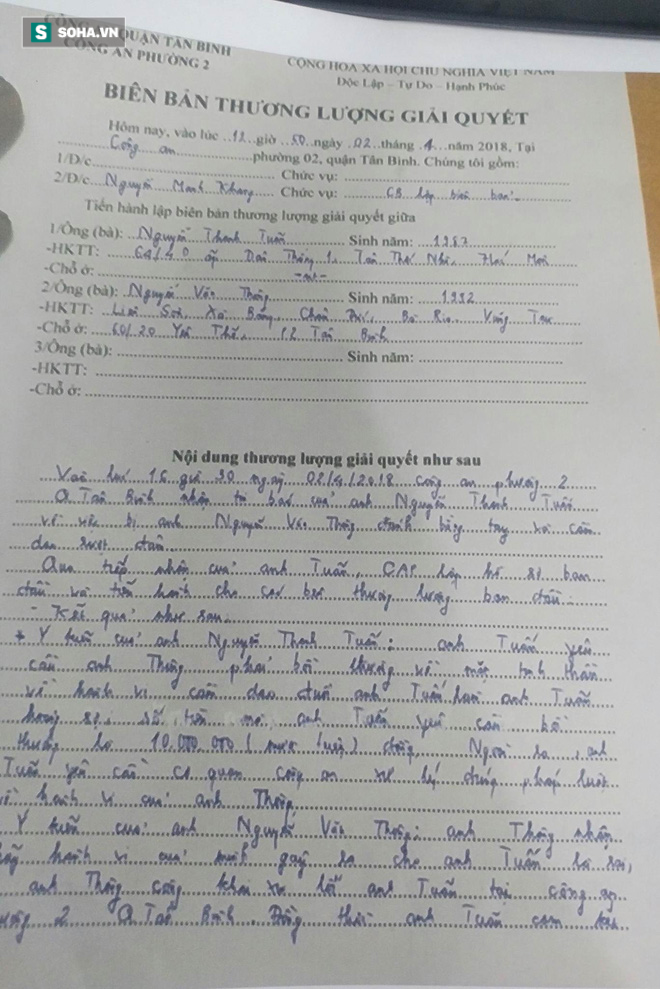 S SOHA.VN
QUẬN TÂN BÌNH
CÔNG AN PHƯỜNG 2
CỘNG HÒA XÃ HỘI CHỦ NGHĨA VIỆT NAM
Độc Lập – Tự Do – Hạnh Phúc
BIÊN BẢN THƯƠNG LƯỢNG GIẢI QUYẾT
Hôm nay, vào lúc 12 giờ 50 ngày 02 tháng 4 năm 2018, Tại
Công an phường 02, quận Tân Bình. Chúng tôi gồm:
1/Đ/c Chức vụ:
2/Đ/c Nguyễn Mạnh Khang Chức vụ: CB lập biên bản
Tiến hành lập biên bản thương lượng giải quyết giữa
1/Ông (bà): Nguyễn Thanh Tuấn Sinh năm: 1987
-HKTT: 64/4D ấp
-Chỗ ở:
2/Ông (bà): Nguyễn Văn Thông Sinh năm: 1992
-HKTT: Bà Rịa Vũng Tàu
-Chỗ ở: 60/20 Yên Thế, P2 Tân Bình
3/Ông (bà): Sinh năm:
-HKTT:
-Chỗ ở:
Nội dung thương lượng giải quyết như sau
Vào lúc 16 giờ 30 ngày 02/4/2018 công an phường 2
Q Tân Bình nhận tin báo của anh Nguyễn Thanh Tuấn
về việc bị anh Nguyễn Văn Thông đánh bằng tay và cầm
dao rượt đuổi
Qua tiếp nhận của anh Tuấn, CAP lập hồ sơ ban
đầu và tiến hành cho các bên thương lượng ban đầu
- Kết quả như sau.
* Ý kiến của anh Nguyễn Thanh Tuấn: anh Tuấn yêu
cầu anh Thông phải bồi thường về mặt tinh thần
về hành vi cầm dao đuổi anh Tuấn làm anh Tuấn
hoảng sợ, số tiền mà anh Tuấn yêu cầu bồi
thường là 10.000.000 (mười triệu) đồng, Ngoài ra, anh
Tuấn yêu cầu cơ quan công an xử lý đúng pháp luật
về hành vi của anh Thông
Ý kiến của anh Nguyễn Văn Thông: anh Thông nhận
thấy hành vi của mình gây ra cho anh Tuấn là sai,
anh Thông công khai xin lỗi anh Tuấn tại công an
phường 2 Q Tân Bình. Đồng thời anh Tuấn cam kết